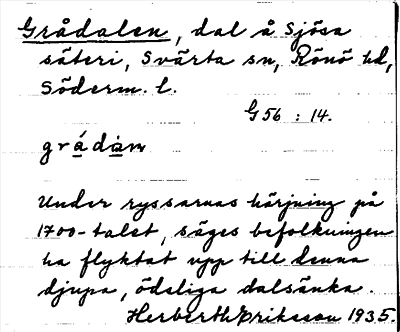 Grådalen, dal å Sjösa
säteri, Svärta sn, Rönö hd,
Söderm. l.
G 56 : 14.
grádàn
Under ryssarnas härjning på
1700-talet, säges befolkningen
ha flyktat upp till denna
djupa, ödsliga dalsänka.
Herberth Eriksson 1935.